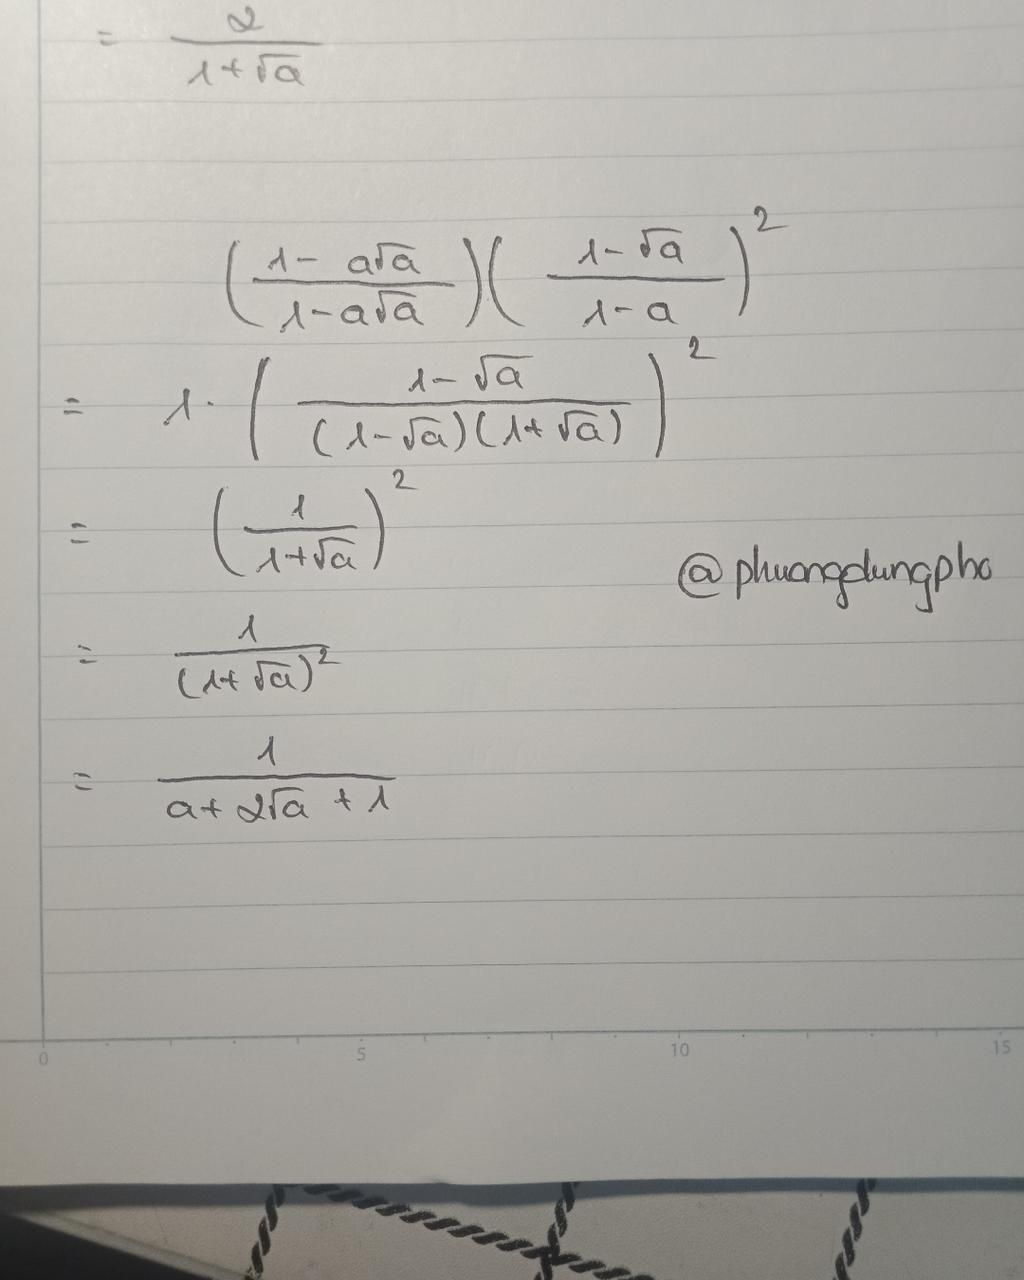 = 2/(1+√a)
((1- a√a)/(1-a√a))((1-√a)/(1-a))²
= 1·((1-√a)/((1-√a)(1+√a)))²
= (1/(1+√a))²
@phuongdungpho
= 1/(1+√a)²
= 1/(a+2√a+1)
0 5 10 15